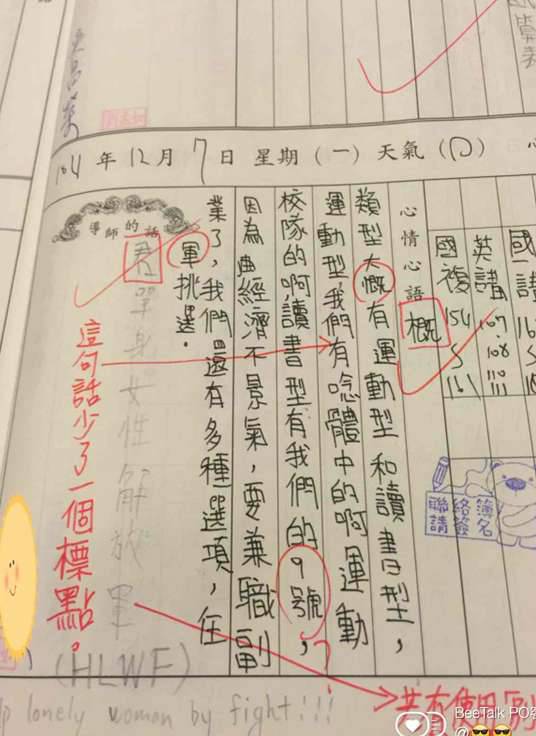 104 年 12 月 7 日 星期 (一) 天氣 (囗)
國複 154 5 161
英講 107. 108 110 111
心情心語
概
類型大慨有運動型和讀書型，
運動型我們有唸體中的啊運動
校隊的啊，讀書型有我們的9號，
因為經濟不景氣，要兼職副
業了，我們還有多種選項，任
軍挑選．
?
導師的話
君單身女性解放軍
(HLWF)
lonely woman by fight!!!
這句話少了一個標點。
聯絡簿
請簽名
BeeTalk PO